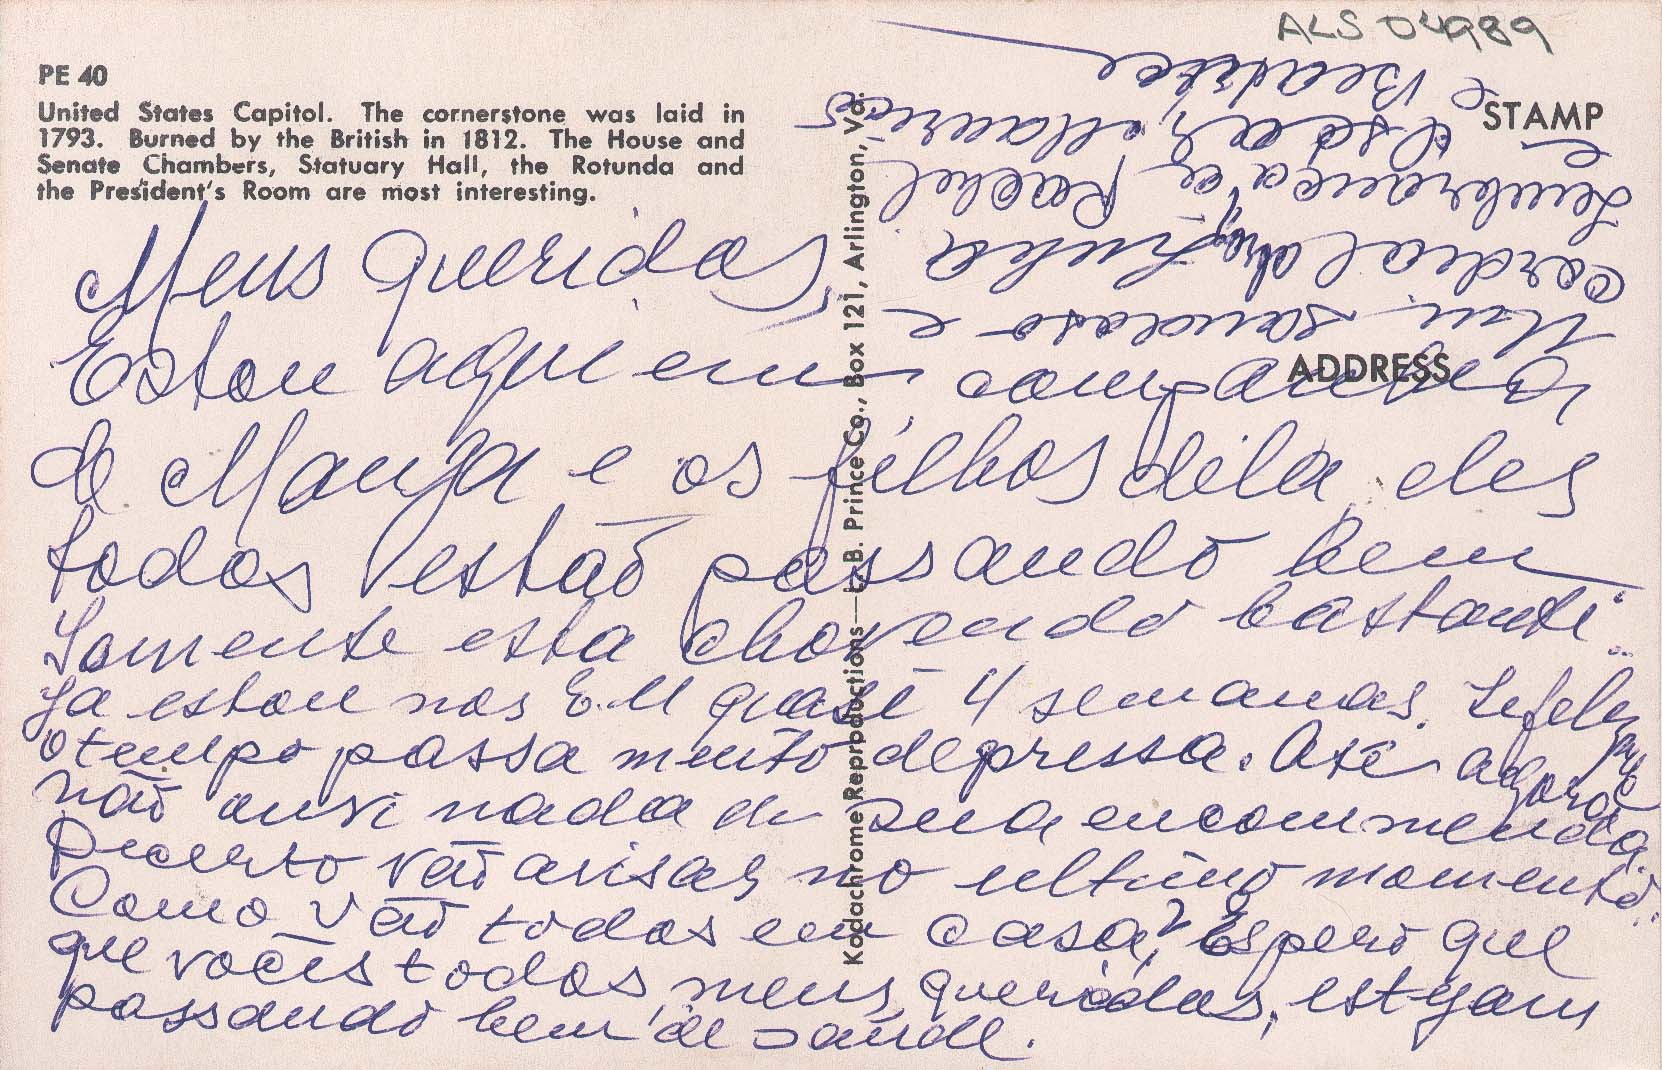 ALS 04989
PE 40
United States Capitol. The cornerstone was laid in
1793. Burned by the British in 1812. The House and
Senate Chambers, Statuary Hall, the Rotunda and
the President's Room are most interesting.
STAMP
ADDRESS
Kodachrome Reproductions—L. B. Prince Co., Box 121, Arlington, Va.
Meus queridos,
Estou aqui em companhia
de Manya e os filhos dela, eles
todos estão passando bem
Somente esta chovendo bastante.
Ja estou nos E.U quase 4 semanas. Infeliz
o tempo passa muito depressa. Até agora
não ouvi nada de sua encommenda.
Decerto vão avisar no ultimo momento.
Como vão todos em casa? Espero que
que vocês todos, meus queridos, estejam
passando bem de saúde.
Um saudoso e
cordial abraço,
Lembrança a Rachel
e Isaac, Mauricio
e Beatrice